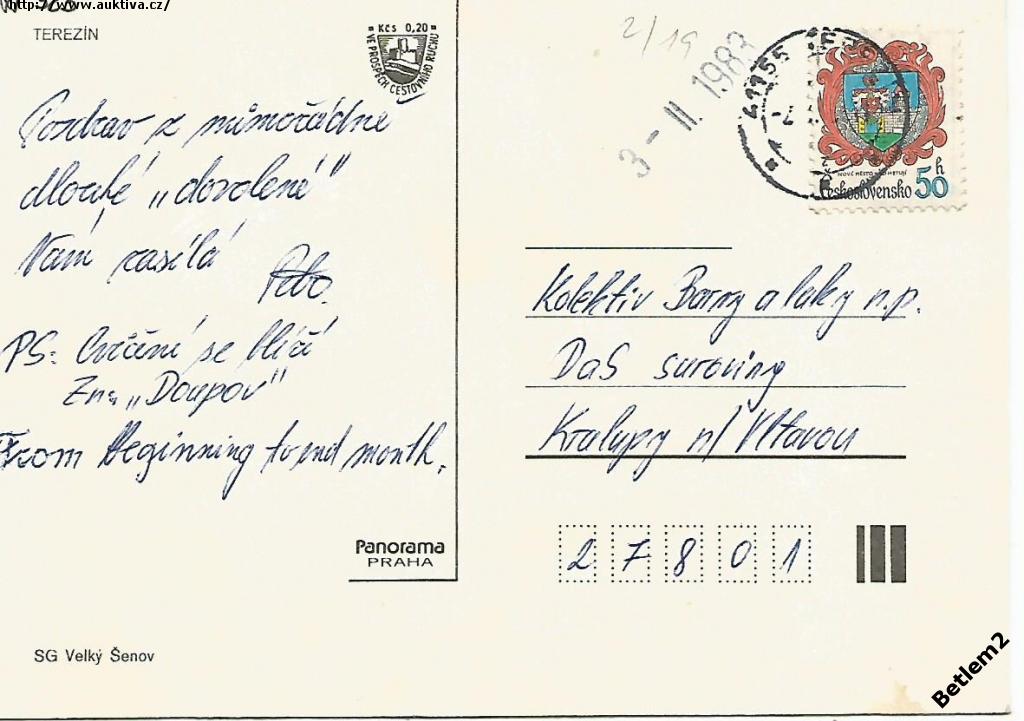 http://www.auktiva.cz/
TEREZÍN
Kčs 0,20
VE PROSPĚCH CESTOVNÍHO RUCHU
Pozdrav z mimořádně
dlouhé „dovolené"
Vám zasílá
PS: Cvičení se blíží
Zn: „Doupov"
From Beginning to end month.
Panorama
PRAHA
SG Velký Šenov
2/19
3-II.1983
41155
NOVÉ MĚSTO NAD METUJÍ
Československo 50 h
Kolektiv Barvy a laky n.p.
DaS suroviny
Kralupy n/Vltavou
27801
Betlem2